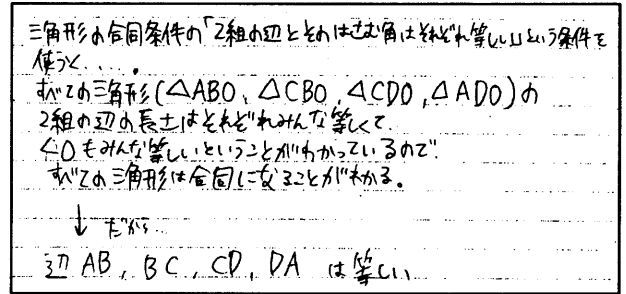 三角形の合同条件の「2組の辺とそのはさむ角はそれぞれ等しい」という条件を
使うと....
すべての三角形(△ABO, △CBO, △CDO, △ADO)の
2組の辺の長さはそれぞれみんな等しくて
∠Oもみんな等しいということがわかっているので
すべての三角形は合同になることがわかる。
↓ だから...
辺 AB, BC, CD, DA は等しい